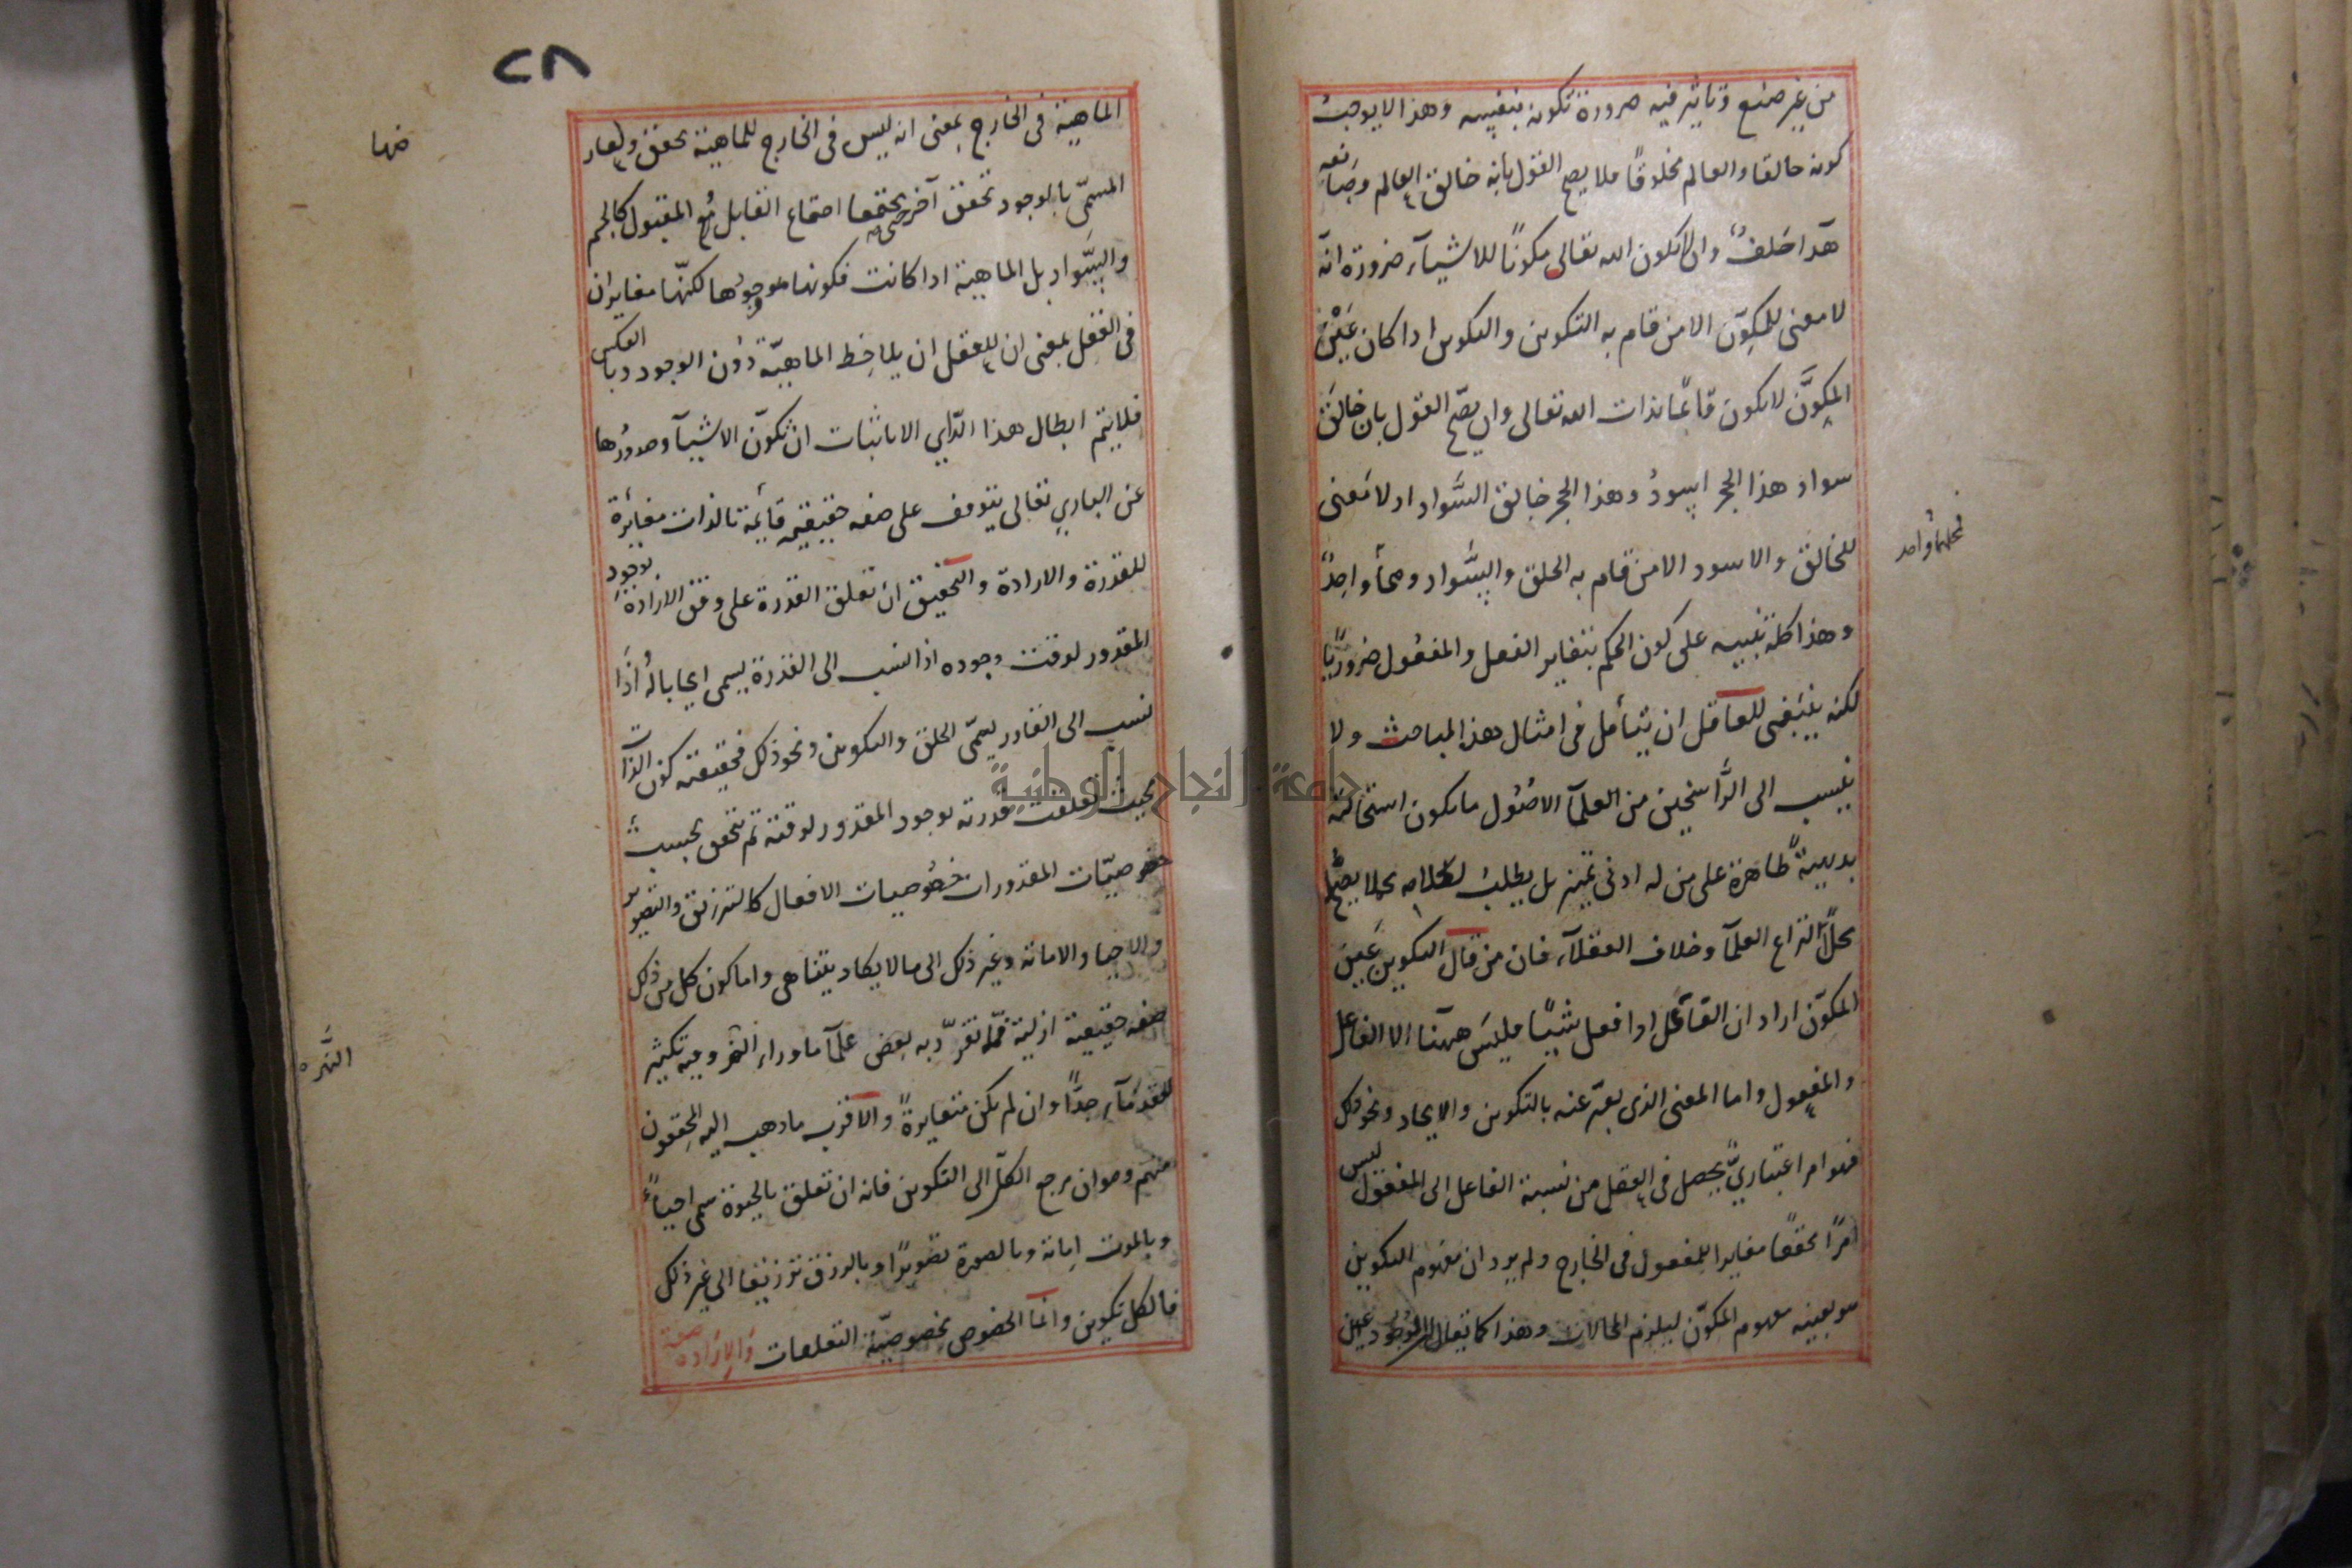 من غير صنع وتاثير فيه ضرورة تكونه بنفسه وهذا لا يوجب
كونه خالقا والعالم مخلوقا فلا يصح القول بأنه خالق العالم وصانعه
هذا خلف وان لا يكون الله تعالى مكونا للاشيآء ضرورة انه
لا معنى للمكوِّن الا من قام به التكوين والتكوين اذا كان عين
المكوَّن لا يكون قائما بذات الله تعالى وان يصح القول بان خالق
سواد هذا الحجر اسود وهذا الحجر خالق السَّواد اذ لا معنى
للخالق والاسود الا من قام به الخلق والسَّواد وهما واحد
فمحلهما واحد
وهذا كله تنبيه على كون الحكم بتغاير الفعل والمفعول ضروريا
لكنه ينبغي للعاقل ان يتأمل في امثال هذا المباحث ولا
ينسب الى الرَّاسخين من العلمآ الاصول ما يكون استحالته
بديهيةً ظاهرة على من له ادنى تميز بل يطلب لكلامه محلا يصلح
محلّا لنزاع العلمآ وخلاف العقلآء فان من قال التكوين عين
المكوّن اراد ان الفاعل اذا فعل شيئا فليس ههنا الا الفاعل
والمفعول واما المعنى الذي يعبّر عنه بالتكوين والايجاد ونحو ذلك
فهو امر اعتباريّ يحصل في العقل من نسبة الفاعل الى المفعول ليس
امرًا محققا مغايرا للمفعول في الخارج ولم يرد ان مفهوم التكوين
هو بعينه مفهوم المكوّن ليلزم المحالات وهذا كما يقال ان الوجود عين
٢٨
الماهية في الخارج بمعنى انه ليس في الخارج للماهية تحقق ولعارضها
المسمّى بالوجود تحقق آخر حتى يجتمعا اجتماع القابل مع المقبول كالجسم
والسَّواد بل الماهية اذا كانت فكونها هو وجودها لكنّهما مغايران
في العقل بمعنى ان للعقل ان يلاحظ الماهيّة دون الوجود وبالعكس
فلا يتم ابطال هذا الرَّأي الا باثبات ان تكوّن الاشيآ وصدورها
عن الباري تعالى يتوقف على صفة حقيقية قائمة بالذات مغايرة
للقدرة والارادة والتحقيق ان تعلق القدرة على وفق الارادة بوجود
المقدور لوقت وجوده اذا نسب الى القدرة يسمى ايجابا له اذا
نسب الى القادر يسمّى الخلق والتكوين ونحو ذلك فحقيقته كون الذات
بحيث تعلقت قدرته بوجود المقدور لوقته ثم تتحقق بحسب
خصوصيّات المقدورات خصوصيات الافعال كالترزيق والتصوير
والاحيا والاماتة وغير ذلك الى ما لا يكاد يتناهى واما كون كل من ذلك
صفة حقيقية ازلية فمما تفرّد به بعض علمآ ما وراء النهر وفيه تكثير
النَّهر
للقدمآء جدًّا وان لم يكن متغايرةً والاقرب ما ذهب اليه المحققون
منهم وهو ان مرجع الكلّ الى التكوين فانه ان تعلق بالحيوة سمى احياءً
وبالموت اماتة وبالصورة تصويرًا وبالرزق ترزيقا الى غير ذلك
فالكل تكوين وانما الخصوص بخصوصيّة التعلقات والارادة صفة
جامعة النجاح الوطنية